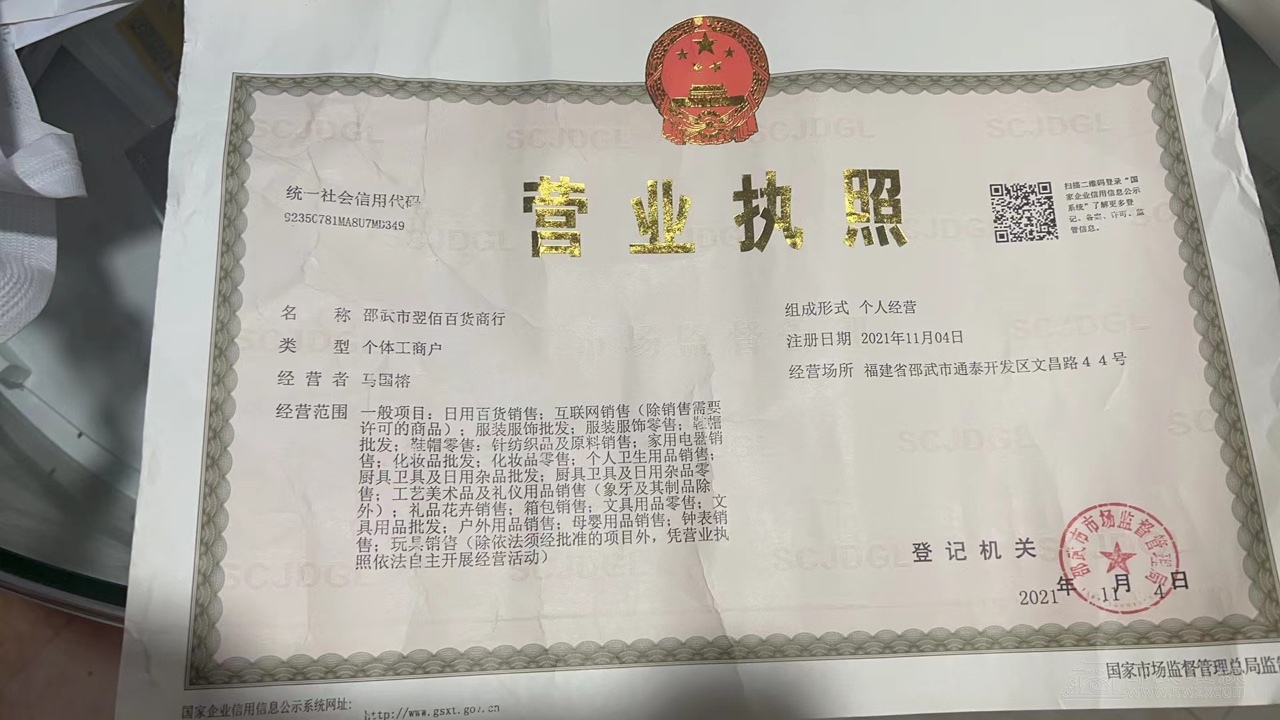 营业执照
统一社会信用代码
扫描二维码登录“国
家企业信用信息公示
系统”了解更多登
记、备案、许可、监
管信息。
名 称 邵武市翌佰百货商行
类 型 个体工商户
经 营 者 马国榕
经营范围 一般项目：日用百货销售；互联网销售（除销售需要
许可的商品）；服装服饰批发；服装服饰零售；鞋帽
批发；鞋帽零售；针纺织品及原料销售；家用电器销
售；化妆品批发；化妆品零售；个人卫生用品销售；
厨具卫具及日用杂品批发；厨具卫具及日用杂品零
售；工艺美术品及礼仪用品销售（象牙及其制品除
外）；礼品花卉销售；箱包销售；文具用品零售；文
具用品批发；户外用品销售；母婴用品销售；钟表销
售；玩具销售（除依法须经批准的项目外，凭营业执
照依法自主开展经营活动）
组成形式 个人经营
注册日期 2021年11月04日
经营场所 福建省邵武市通泰开发区文昌路44号
登记机关
邵武市市场监督管理局
2021年 11月 4日
国家企业信用信息公示系统网址：
http://www.gsxt.gov.cn
国家市场监督管理总局监
SCJDGL